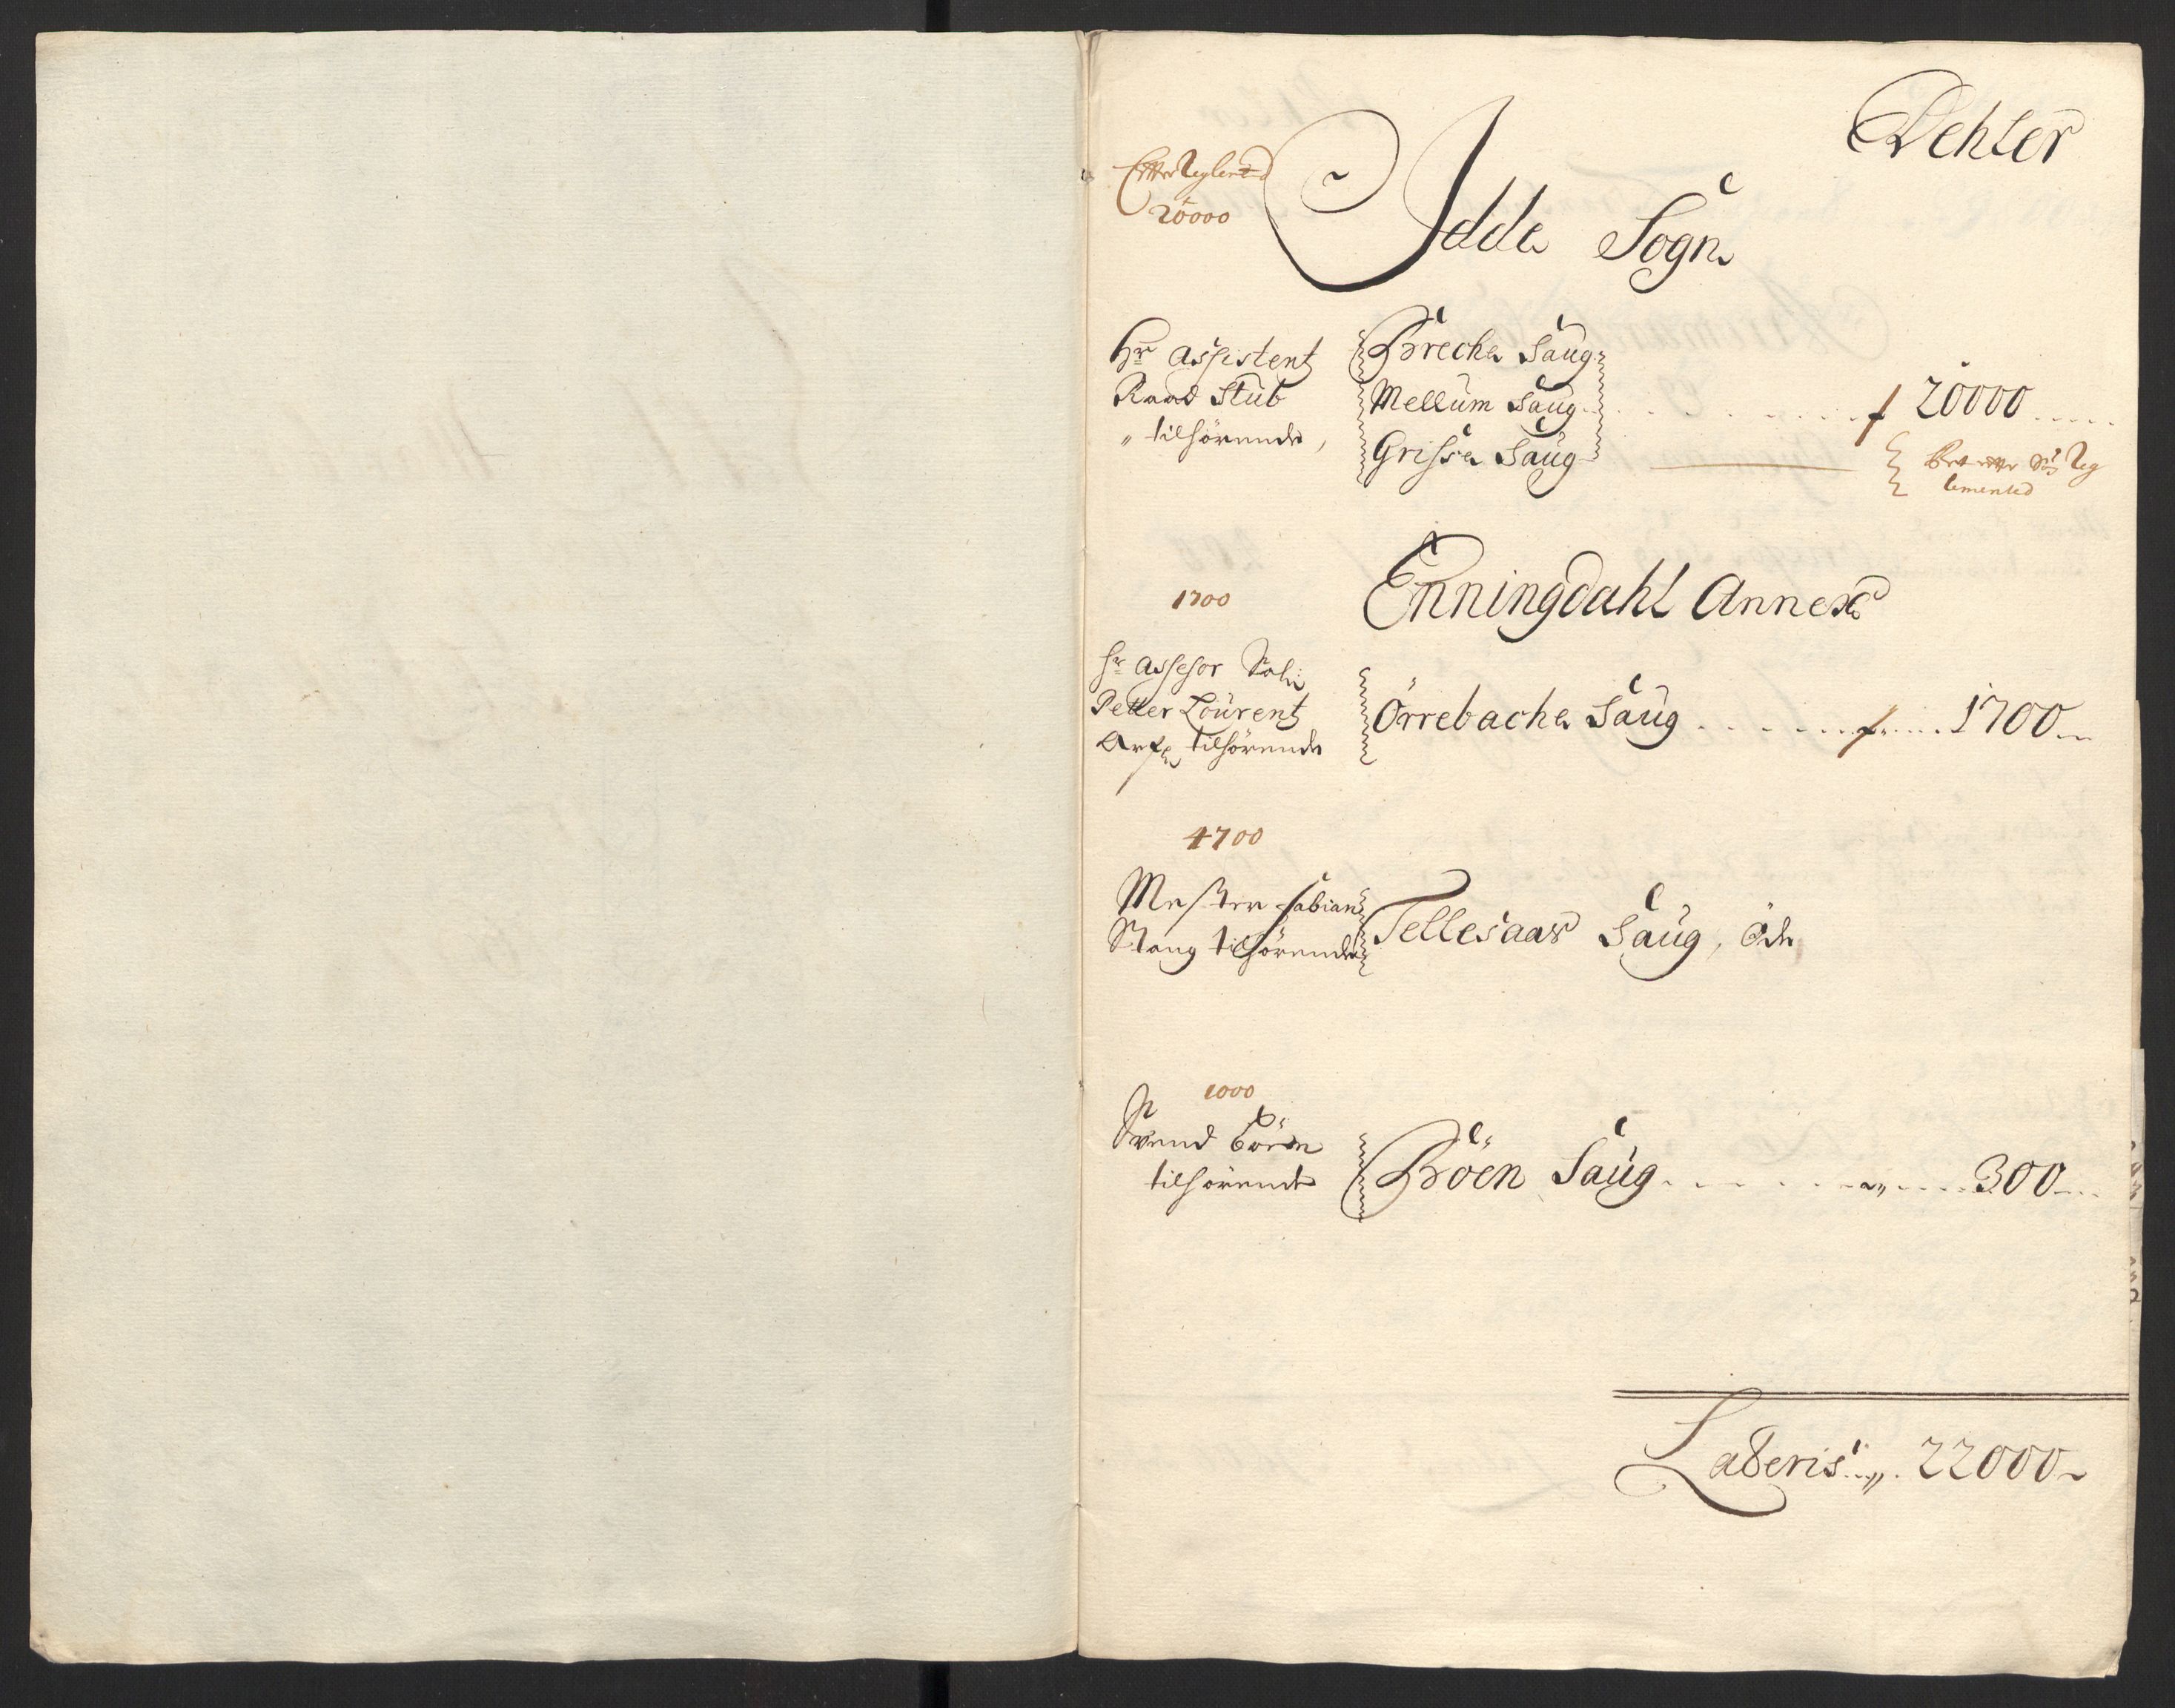 Dehler
Effter Reglem̅t
20000
Idde Sogn
Hr Assistent
Raad Stub
tilhørende,
Breche Saug
Mellum Saug
Grisse Saug
20000
Reg
lemented
Enningdahl Annex
1700
Hr Assesor
Petter Lourentz
tilhørende
Örrebache Saug 1700
4700
Mester Fabian
Stang tilhørende
Tellesaas Saug, Öde
1000
Svend Böen
tilhørende
Böen Saug 300
Lateris 22000